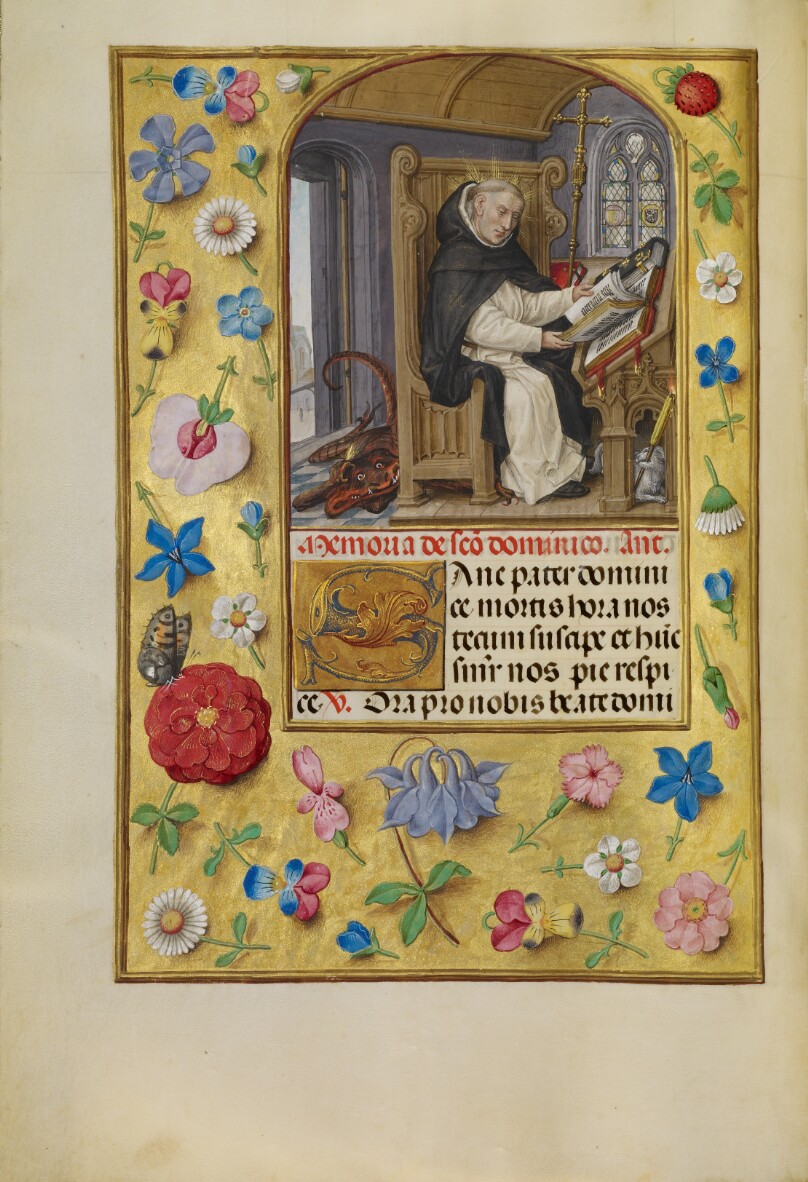 Memoria de scõ dominico. Ant.
Ane pater domini
ce mortis hora nos
tecum suscipe et hũc
smr nos pie respi
ce. V. Ora pro nobis beate domi